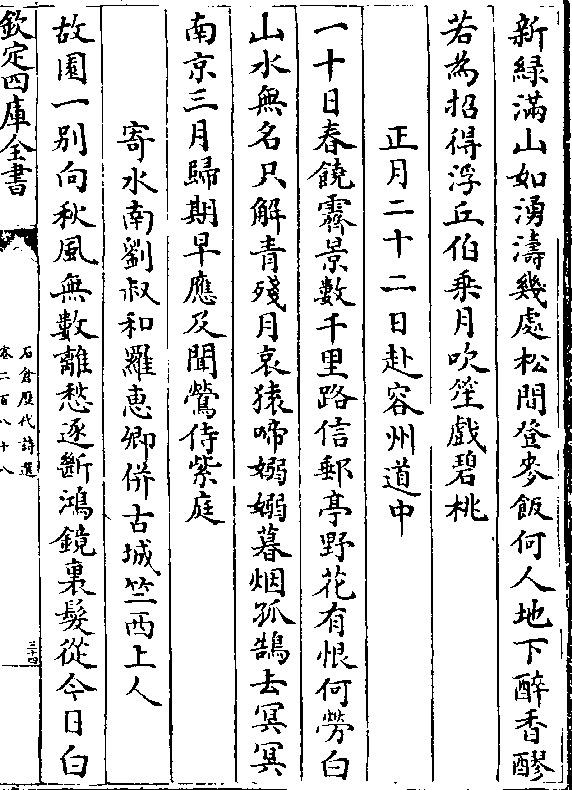 新綠滿山如湧濤幾處松間登麥飯何人地下醉香醪
若為招得浮丘伯乗月吹笙戲碧桃
正月二十二日赴容州道中
一十日春饒霽景數千里路信郵亭野花有恨何勞白
山水無名只解青殘月哀猿啼嫋嫋暮烟孤鵠去冥冥
南京三月歸期早應及聞鶯侍紫庭
寄水南劉叔和羅恵卿併古城竺西上人
故園一別向秋風無數離愁逐斷鴻鏡裏髮從今日白
欽定四庫全書
石倉歴代詩選
卷二百八十八
三十四